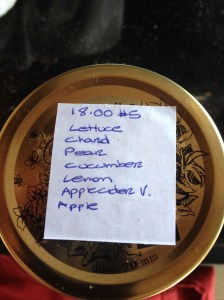 18.00 #5
Lettuce
Chard
Pear
Cucumber
Lemon
Apple Cider V.
Apple
70 mm